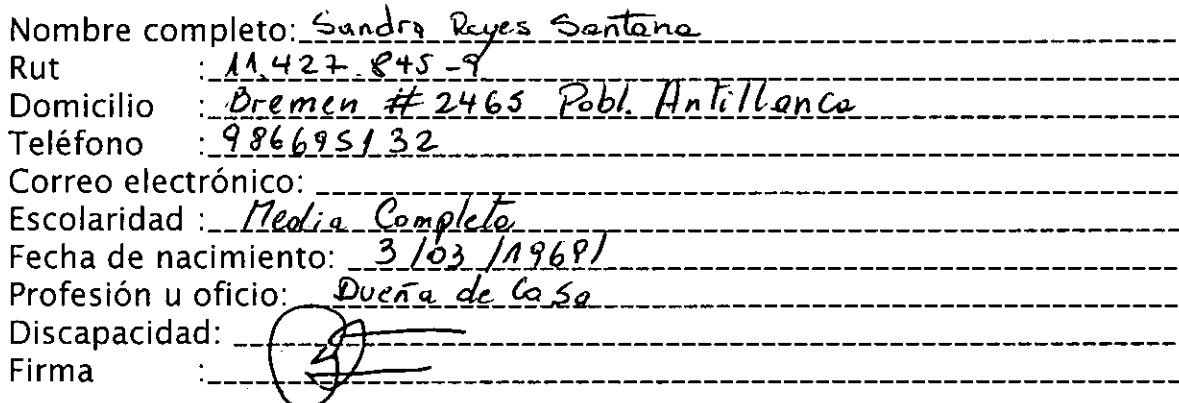 Nombre completo: Sandra Reyes Santana
Rut : 11.427.845-9
Domicilio : Bremen # 2465 Pobl. Antillanca
Teléfono : 986695132
Correo electrónico:
Escolaridad : Media Completa
Fecha de nacimiento: 3/03/1968/
Profesión u oficio: Dueña de Casa
Discapacidad:
Firma :